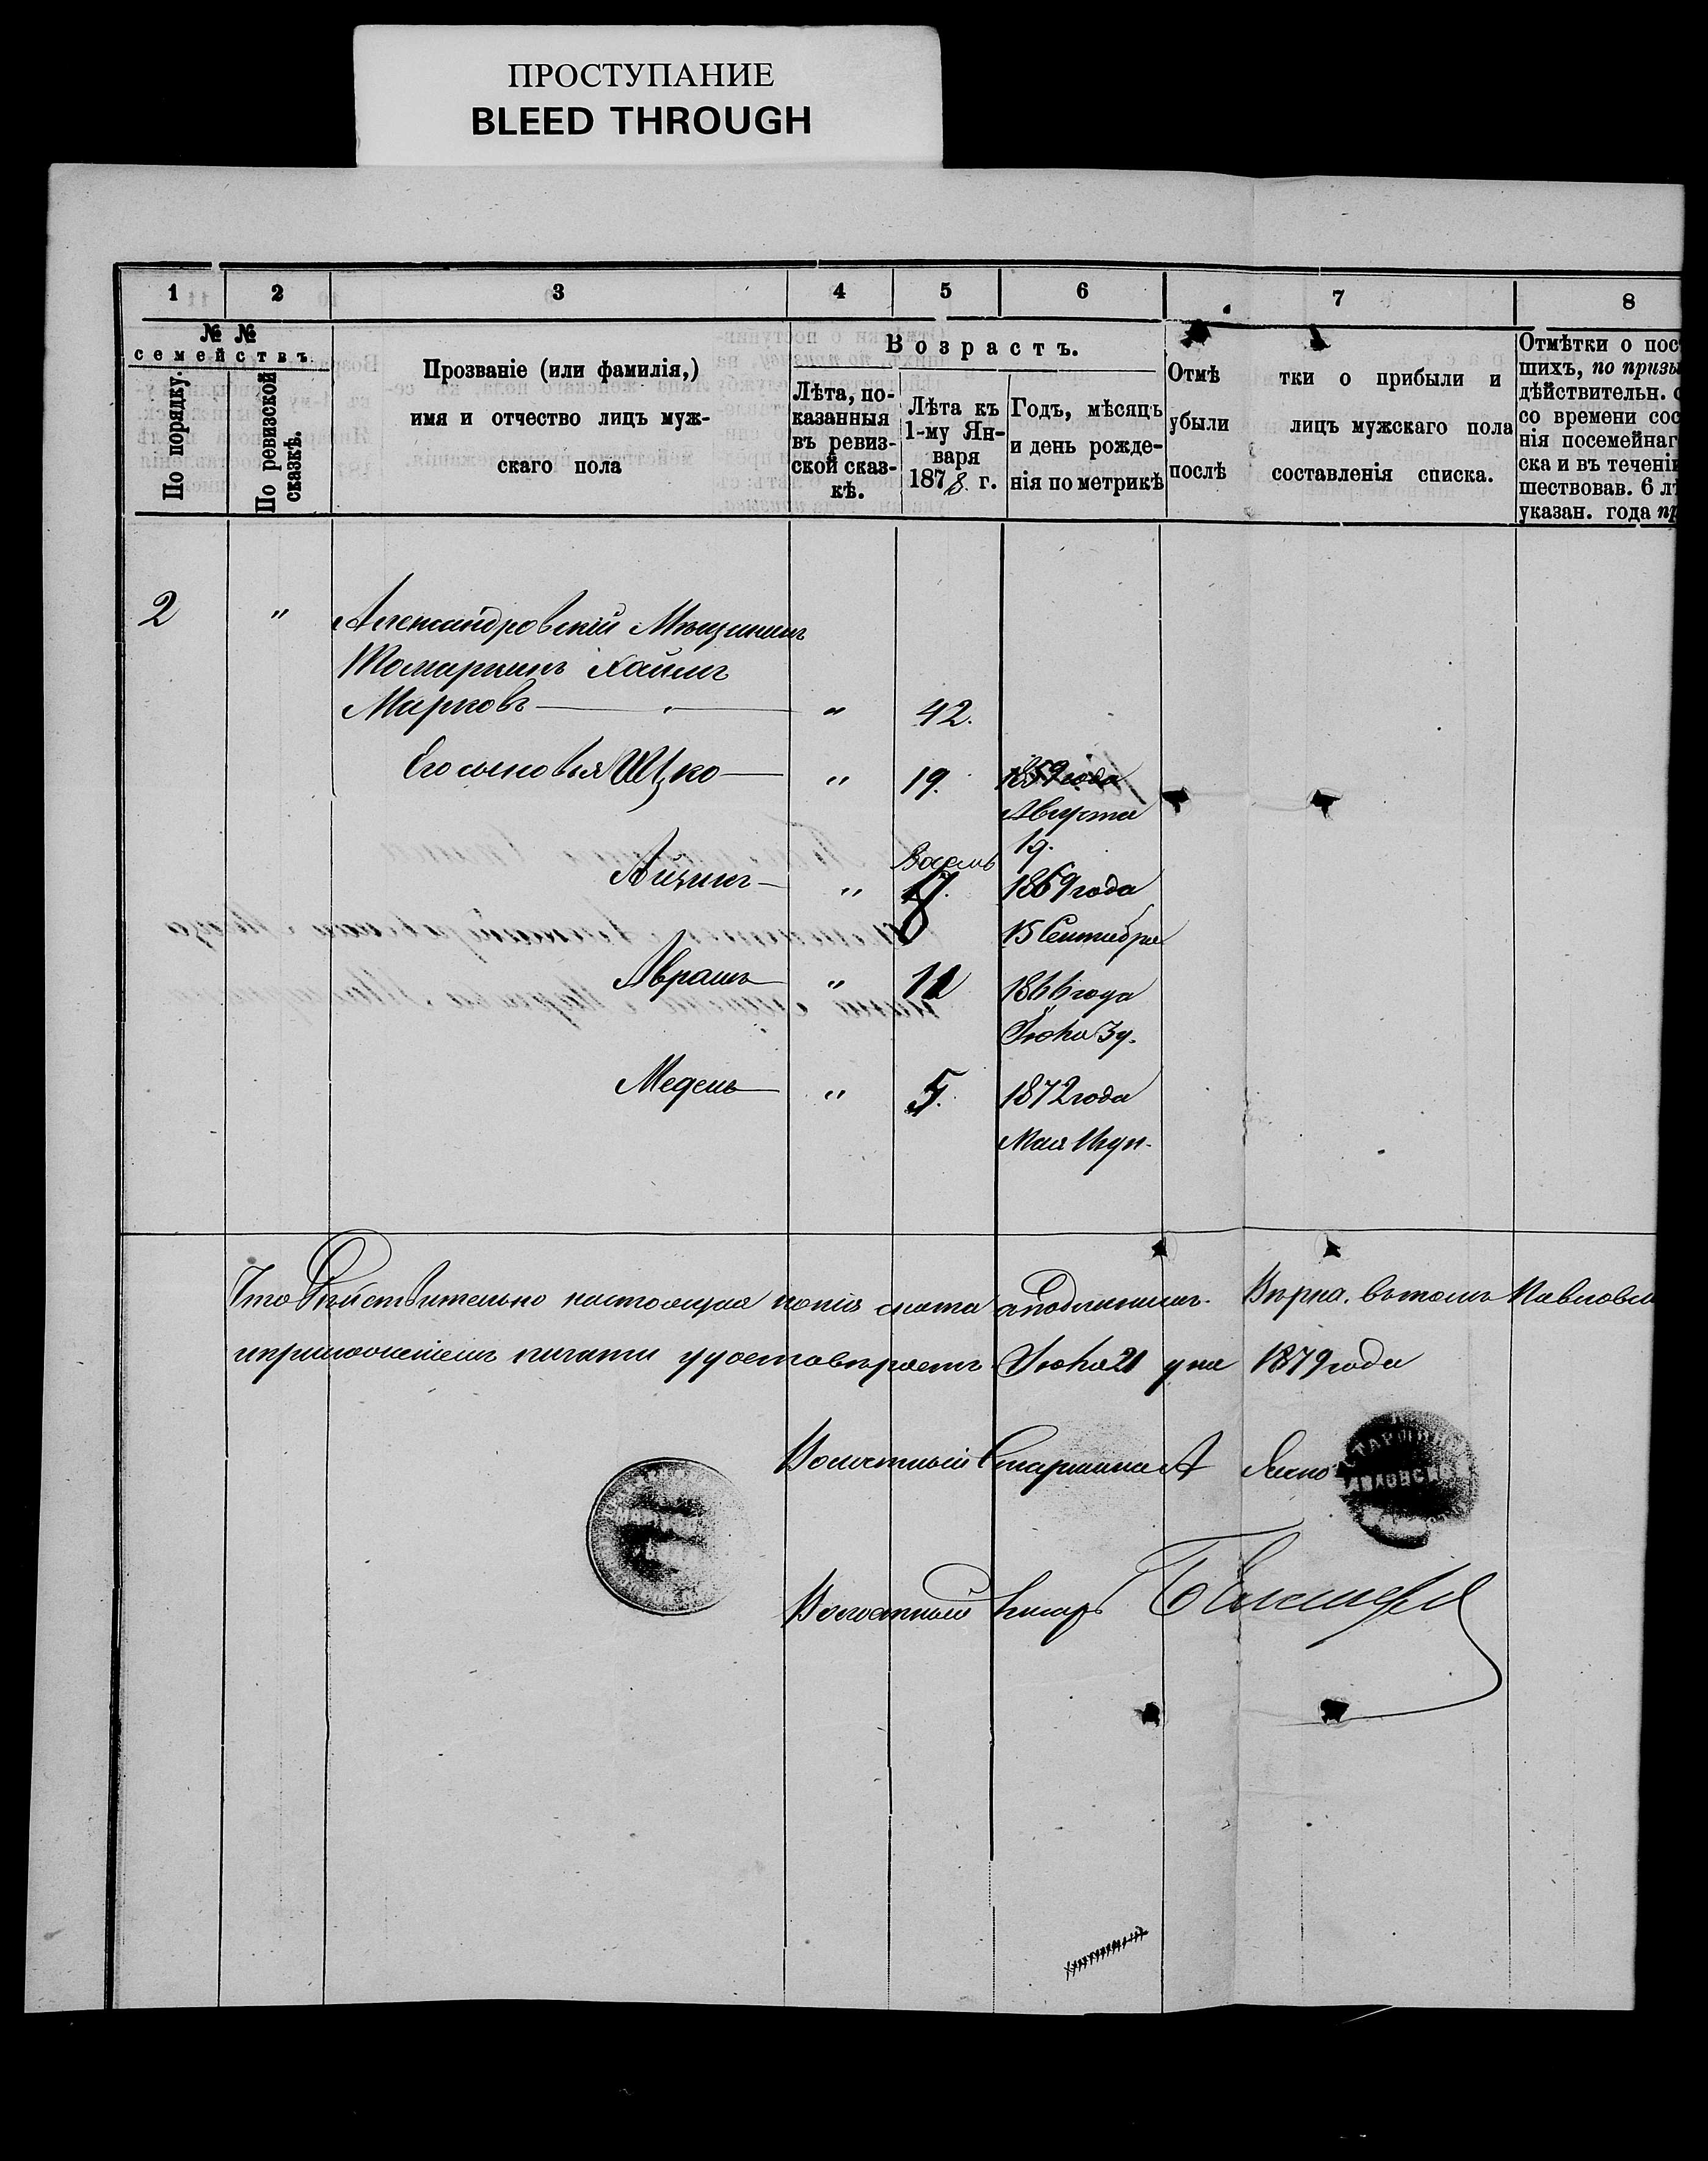 ПРОСТУПАНИЕ
BLEED THROUGH
1 2 3 4 5 6 7 8
№ №
семействъ
По порядку.
По ревизской сказкѣ.
Прозваніе (или фамилія,)
имя и отчество лицъ муж-
скаго пола
Возрастъ.
Лѣта, по-
казанныя
въ ревиз-
ской сказ-
кѣ.
Лѣта къ
1-му Ян-
варя
1878 г.
Годъ, мѣсяцъ
и день рожде-
нія по метрикѣ
Отмѣ тки о прибыли и
убыли лицъ мужскаго пола
послѣ составленія списка.
Отмѣтки о пос
шихъ, по призы
дѣйствительн. с
со времени сос
нія посемейнаг
ска и въ теченіи
шествовав. 6 лѣ
указан. года пр
2 " Александровскій Мѣщанинъ
Томаркинъ Хаимъ
Марковъ — " 42.
Его сыновья Ицко — " 19. 1859 года
Августа
19.
Восемь
Айзикъ — " 8 1869 года
15 Сентября
Абрамъ — " 11 1866 года
Іюня 3 д.
Медель — " 5. 1872 года
Мая
Что действительно настоящая копія снята сподлиннымъ. Вѣрна. въ томъ Павловск
и приложеніемъ печати удостовѣряетъ. Іюня 21 дня 1879 года
Волостной Старшина А
СТАРШИН
Волостный Писарь